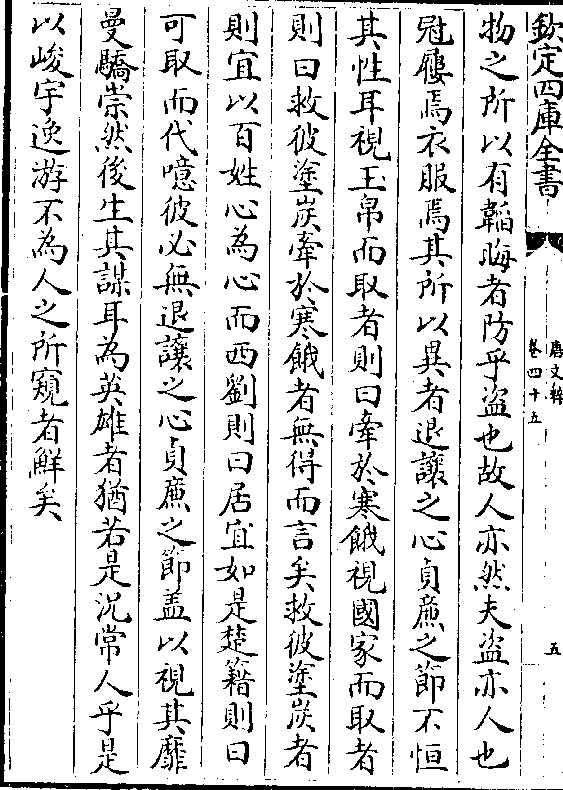 欽定四庫全書
唐文粹
卷四十五
五
物之所以有韜晦者防乎盜也故人亦然夫盜亦人也
冠屨焉衣服焉其所以異者退讓之心貞廉之節不恒
其性耳視玉帛而取者則曰牽於寒餓視國家而取者
則曰救彼塗炭牽於寒餓者無得而言矣救彼塗炭者
則宜以百姓心為心而西劉則曰居宜如是楚籍則曰
可取而代噫彼必無退讓之心貞廉之節盖以視其靡
曼驕崇然後生其謀耳為英雄者猶若是況常人乎是
以峻宇逸游不為人之所窺者鮮矣